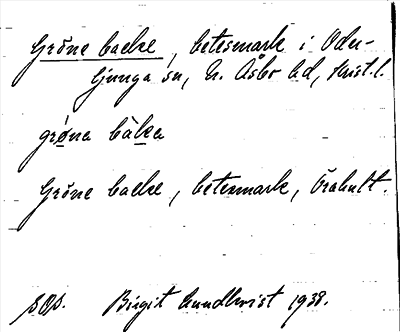 Gröne backe, betesmark i Oder-
ljunga sn, N. Åsbo hd, Krist.l.
grǿna bàka
Gröne backe, betesmark, Örahult.
Birgit Lundkvist 1938.